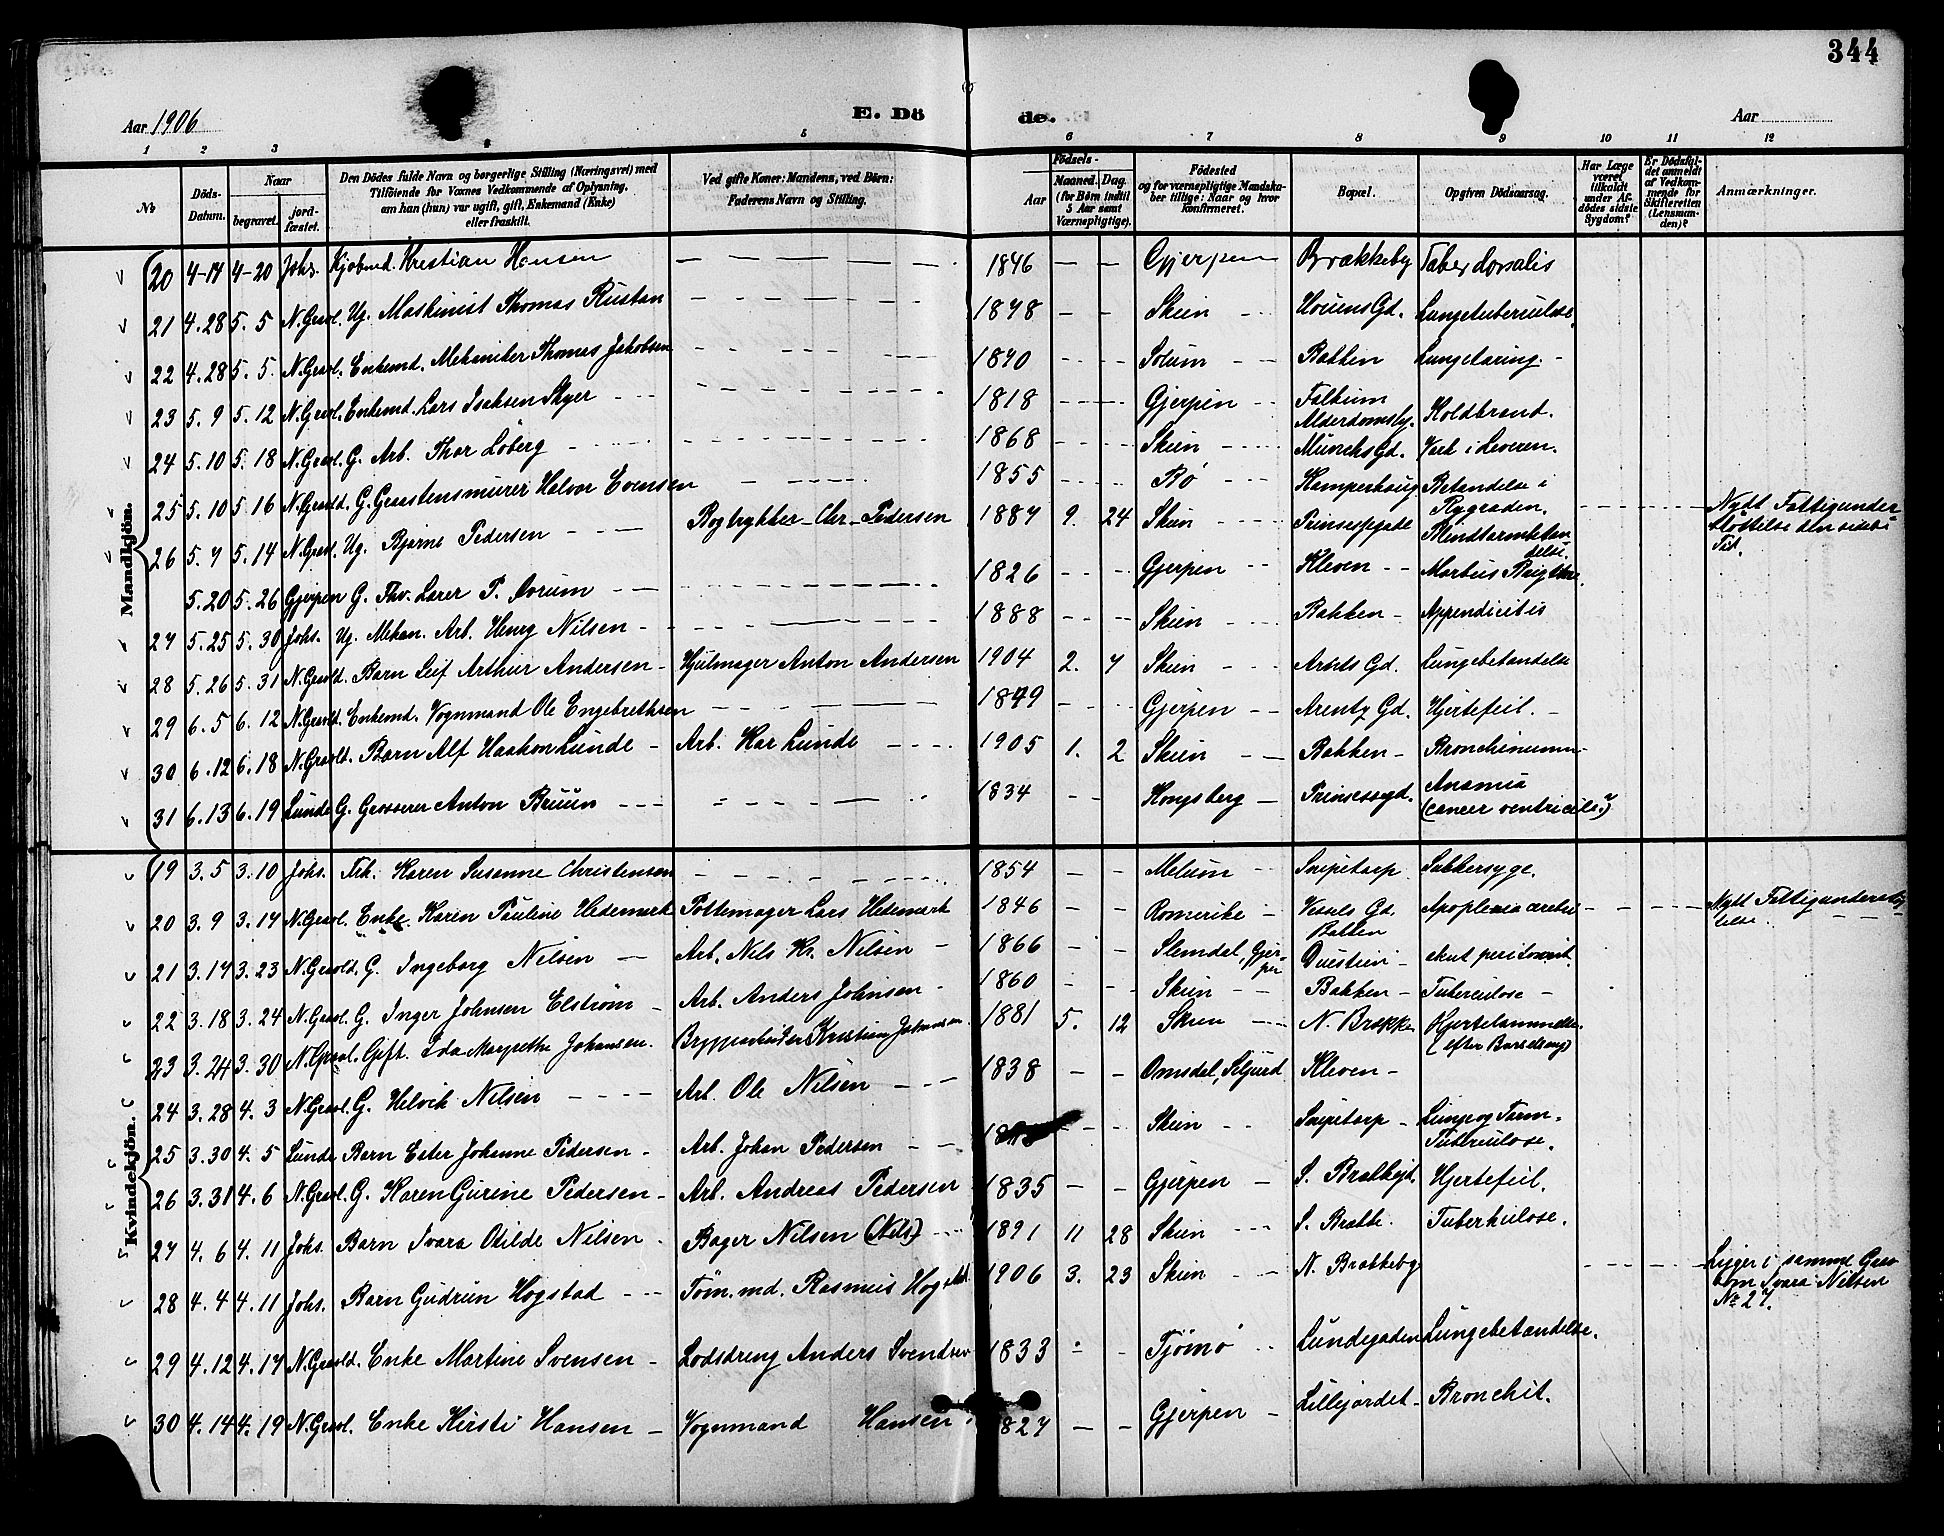 344
Aar 1906
E. Döde.
Aar
1 2 3 5 6 7 8 9 10 11 12
№
Döds-Datum.
Naar begravet. jordfæstet.
Den Dödes fulde Navn og borgerlige Stilling (Næringsvei) med Tilföiende for Voxnes Vedkommende af Oplysning, om han (hun) var ugift, gift, Enkemand (Enke) eller fraskilt.
Ved gifte Koner: Mandens, ved Börn: Faderens Navn og Stilling.
Födsels-
Aar
Maaned. Dag. (for Börn indtil 5 Aar samt Værnepligtige).
Födested og for værnepligtige Mandskaber tillige: Naar og hvor konfirmeret.
Bopæl.
Opgiven Dödsaarsag.
Har Læge været tilkaldt under Afdödes sidste Sygdom?
Er Dödsfaldet anmeldt af Vedkommende for Skifteretten (Lensmanden)?
Anmærkninger.
Mandkjön.
20 4-14 4-20 Johs. Kjøbmd. Kristian Hansen 1846 Gjerpen Brækkeby Tabes dorsalis
21 4.28 5.5 N.Gravl. Ug. Maskinist Thomas Rustan 1878 Skien Houens Gd. Lungetuberculose.
22 4.28 5.5. N.Gravl. Enkemd. Mekaniker Thomas Jakobsen 1840 Solum Bakken Lungetæring.
23 5.9 5.12 N.Gravl. Enkemd. Lars Isaksen Skyer 1818 Gjerpen Falkum Alderdomshj. Koldbrand.
24 5.10 5.18 N.Gravl. G. Arb. Thor Løberg 1868 Skien Münchs Gd. Vert i Leveren.
25 5.10 5.16 N.Gravld. G. Graastensmurer Halvor Evensen 1855 Bø Kamperhaug Betændelse i Rygraden. Nydt Fattigunderstøttelse den sidste Tid.
26 5.7 5.14 N.Gravl. Ug. Bjarne Pedersen Bogtrykker Chr. Pedersen 1887 9. 24 Skien Prinsessegade Blindtarmbetændelse.
5.20 5.26 Gjerpen G. Thv. Lærer P. Aarum 1826 Gjerpen Kleven Morbus Brightii
27 5.25 5.30 Johs. Ug. Mekan. Arb. Henry Nilsen 1888 Skien Bakken Appendicitis
28 5.26 5.31 N.Gravld. Barn Leif Arthur Andersen Hjulmager Anton Andersen 1904 2. 7 Skien Gd. Lungebetændelse
29 6.5 6.12 N.Gravld. Enkemd. Vognmand Ole Engebrethsen 1849 Gjerpen Arentz Gd. Hjertefeil.
30 6.12 6.18 N.Gravld. Barn Alf Haakon Lunde Arb. Kar Lunde 1905 1. 2 Skien Bakken
31 6.13 6.19 Lunde G. Grosserer Anton Bruun 1834 Kongsberg Prinsessegd. Anæmia (cancer ventriculi?)
Kvindekjön.
19 3.5 3.10 Johs. Frk. Karen Susanne Christensen 1854 Melum Snipetorp Sukkersyge.
20 3.9 3.14 N.Gravl. Enke Karen Pauline Hedemark Pottemager Lars Hedemark 1846 Romerike Vessels Gd. Bakken Apoplexia cerebri Nydt Fattigunderstøttelse.
21 3.17 3.23 N.Gravld. G. Ingeborg Nilsen Arb. Nils Kr. Nilsen 1866 Slemdal, Gjerpen Duestien akut peritonit.
22 3.18 3.24 N.Gravl. G. Inger Johnsen Elstrøm Arb. Anders Johnsen 1860 Skien Bakken Tuberculose
23 3.24 3.30 N.Gravl. Gift. Ida Margrethe Johansen. Bryggearbeider Kristian Johansen. 1881 5. 12 Skien N. Brekke Hjertelammelse (efter Barselseng)
24 3.28 4.3 N.Gravl. G. Helvik Nilsen Arb. Ole Nilsen 1838 Omsdal, Seljord Kleven
25 3.30 4.5 Lunde Barn Ester Johanne Pedersen Arb. Johan Pedersen Skien Snipetorp Lunge og Tarm-Tuberculose.
26 3.31 4.6 N.Gravl. G. Karen Gurine Pedersen Arb. Andreas Pedersen 1835 Gjerpen S. Brekkejd. Hjertefeil.
27 4.6 4.11 Johs. Barn Svara Otilde Nilsen Bager Nilsen (Nils) 1891 11 28 Skien S. Brekke. Tuberkulose.
28 4.4 4.11 Johs. Barn Gudrun Hogstad Tøm.md. Rasmus Hogstad 1906 3. 23 Skien N. Brekkeby Ligger i samme Grav som Svara Nilsen № 27.
29 4.12 4.17 N.Gravld. Enke Martine Svensen Lodsdreng Anders Svendsen 1833 Tjømø Lundegaden Lungebetændelse.
30 4.14 4.19 N.Gravl. Enke Kirsti Hansen Vognmand Hansen 1827 Gjerpen Lillejordet Bronchit.